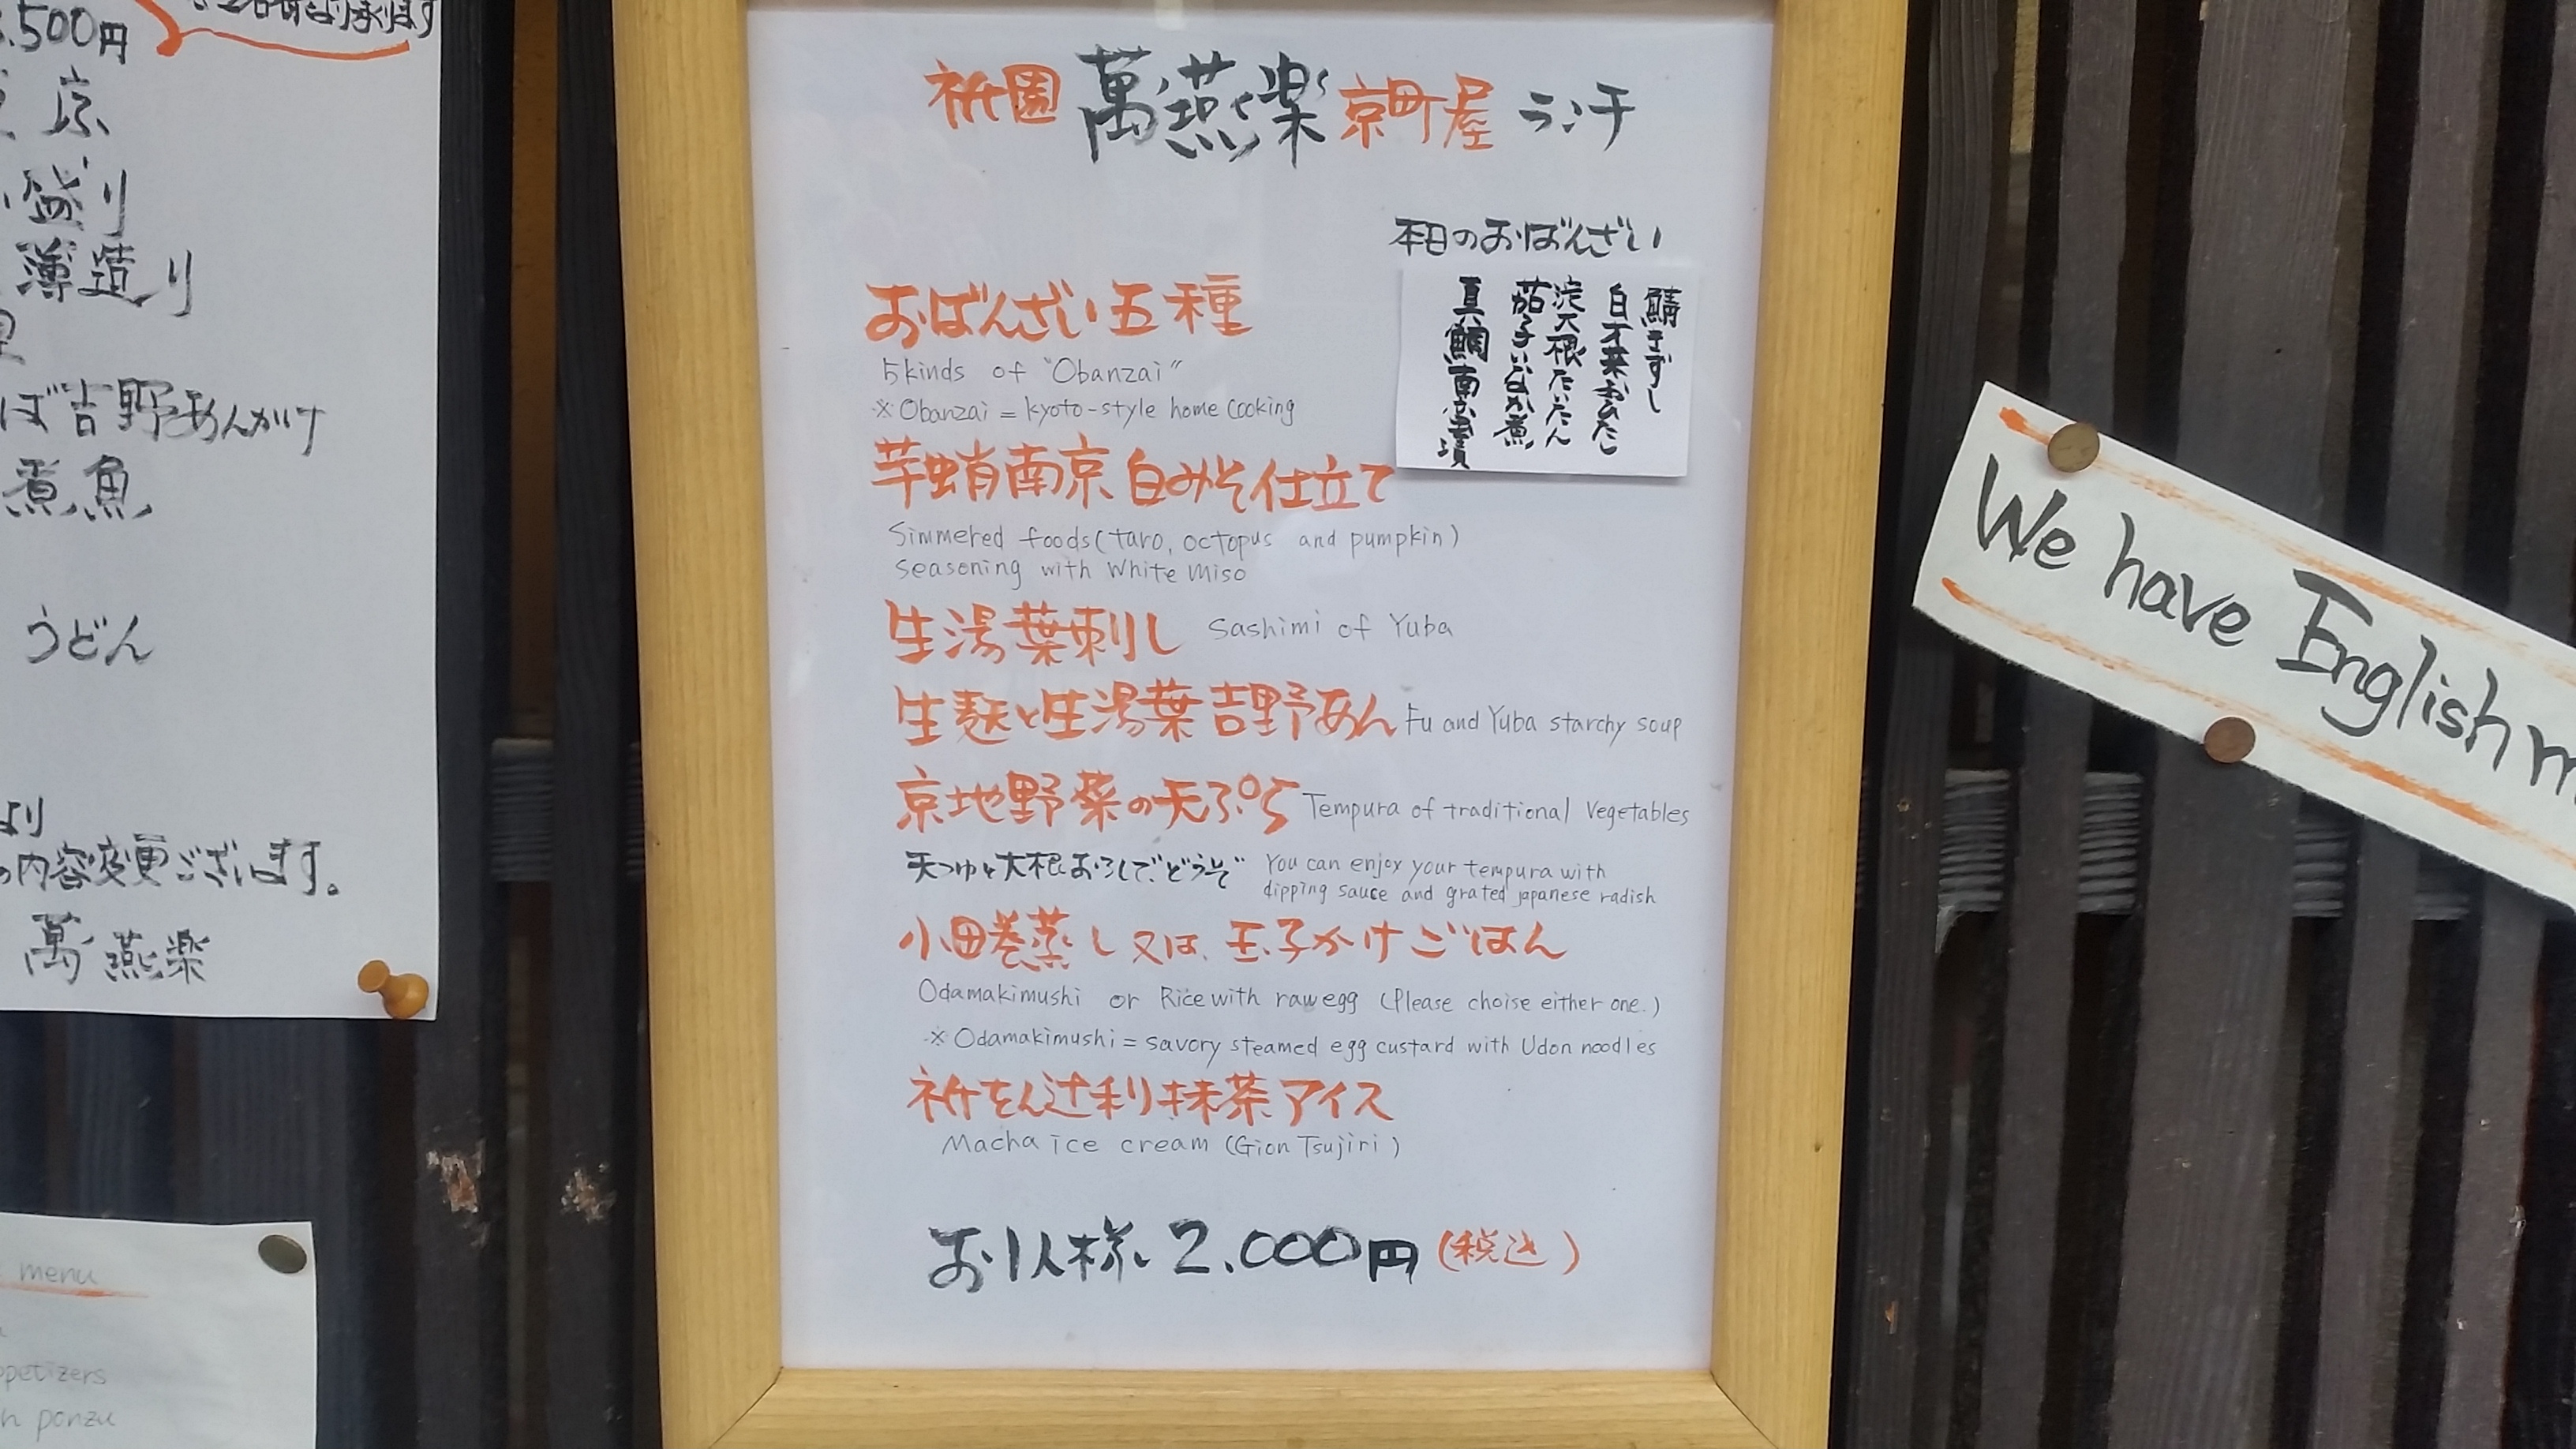 .500円
京
盛り
薄造り
ば吉野あんかけ
煮魚
うどん
より
の内容変更ございます。
萬燕楽
menu
ppetizers
h ponzu
祇園 萬燕楽 京町屋 ランチ
本日のおばんざい
鯖きずし
白才菜おひたし
淀大根たいたん
茄子いなか煮
真鯛南蛮漬
おばんざい五種
5kinds of "Obanzai"
※Obanzai = kyoto-style home cooking
芋蛸南京 白みそ仕立て
Simmered foods (taro, octopus and pumpkin)
seasoning with White Miso
生湯葉刺し Sashimi of Yuba
生麩と生湯葉吉野あん Fu and Yuba starchy soup
京地野菜の天ぷら Tempura of traditional Vegetables
天つゆと大根おろしでどうぞ You can enjoy your tempura with
dipping sauce and grated japanese radish
小田巻蒸し 又は、玉子かけごはん
Odamakimushi or Rice with raw egg (Please choise either one.)
※Odamakimushi = savory steamed egg custard with Udon noodles
祇をん辻利抹茶アイス
Macha ice cream (Gion Tsujiri)
お1人様 2,000円 (税込)
We have English m